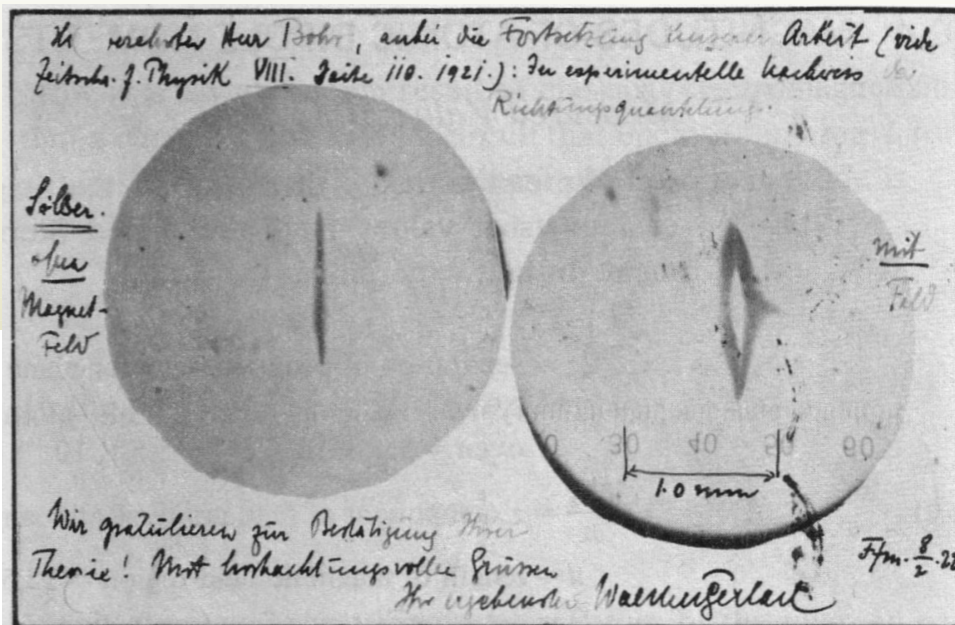 verehrter Herr Bohr, anbei die Fortsetzung unserer Arbeit (vide
Zeitschr. f. Physik VIII. Seite 110. 1921.): Der experimentelle Nachweis der
Richtungsquantelung.
Silber.
ohne
Magnet-
Feld
mit
Feld
0 30 40 50 60
1.0 mm
Wir gratulieren zur Bestätigung Ihrer
Theorie! Mit hochachtungsvollen Grüssen
Ihr ergebenster Walther Gerlach
Ffm. 8/2. 22